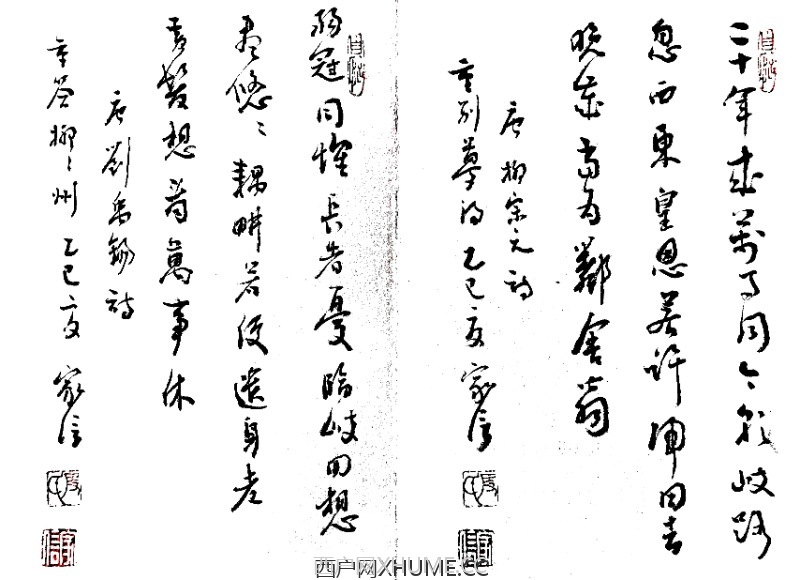 二十年來萬事同今朝岐路
忽西東皇恩若許歸田去
晚歲當為鄰舍翁
唐柳宗元詩
重別夢得乙巳夏 家信
弱冠同懷長者憂臨岐回想
盡悠〻耦畊若便遺身老
黃髮想看萬事休
唐劉禹錫詩
重答柳〻州乙巳夏 家信
西户网XHUME.CC